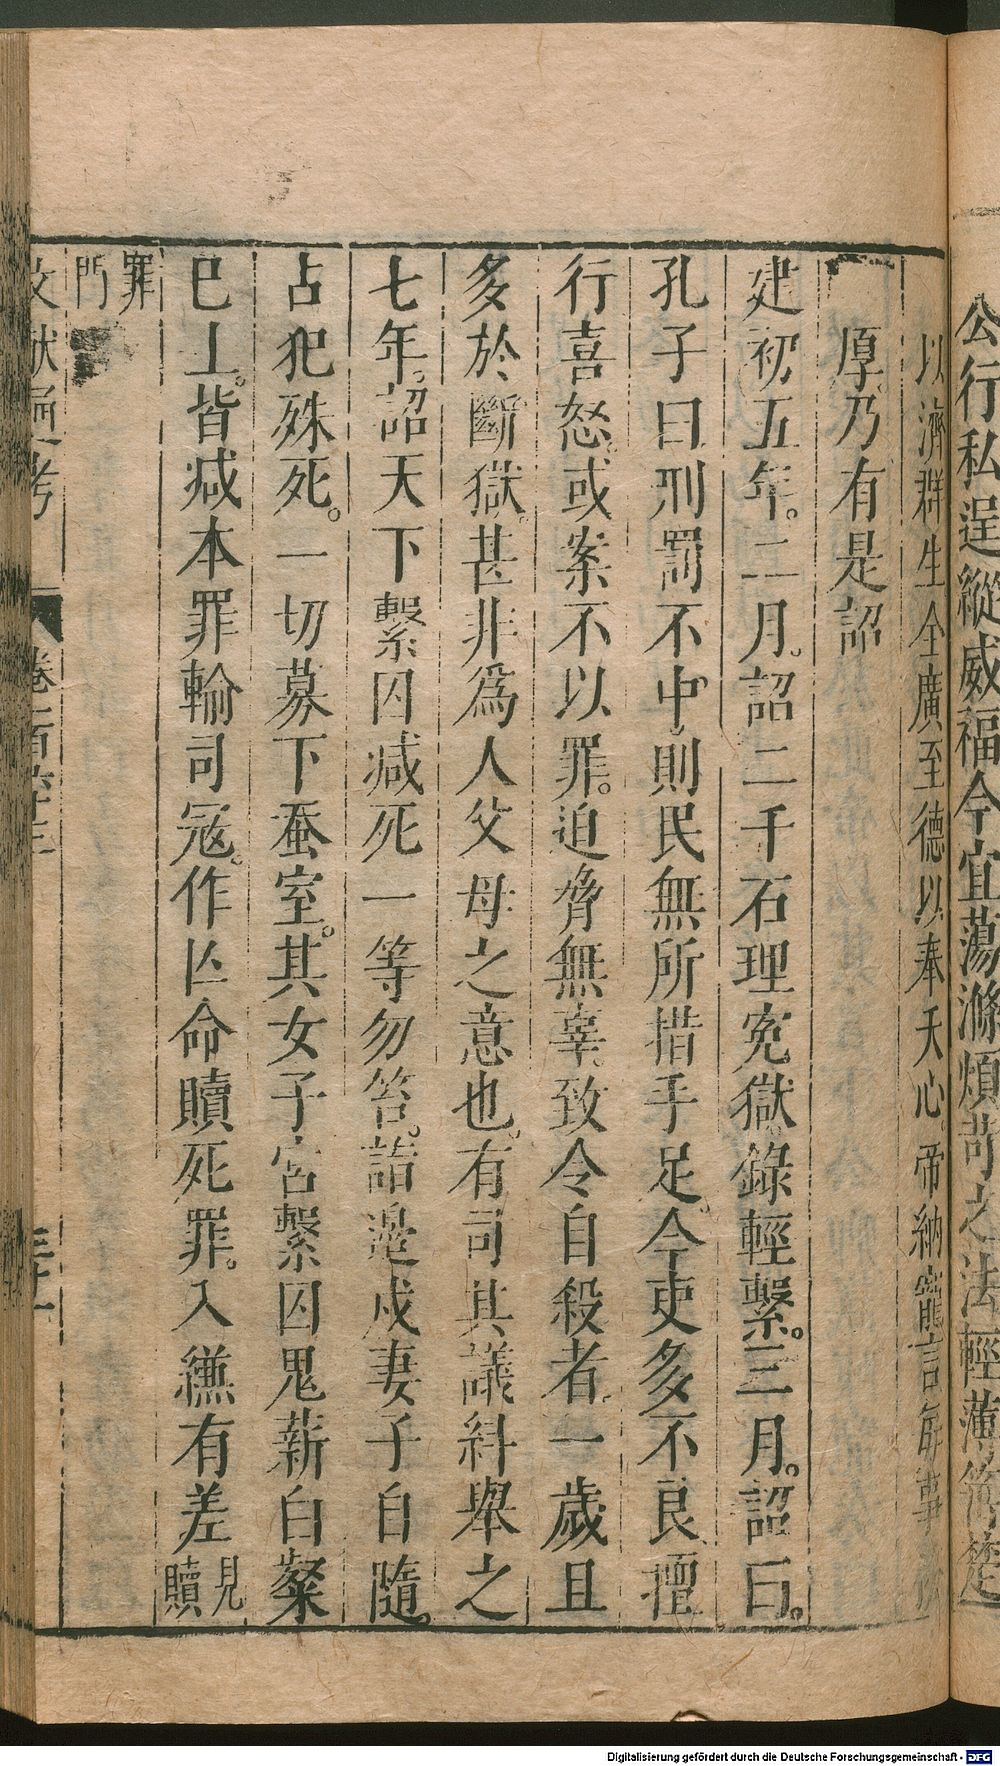 公行私逞縱威福今宜蕩滌煩苛之法輕薄箠楚
以濟群生全廣至德以奉天心帝納寵言每事
厚乃有是詔
建初五年。二月。詔二千石理冤獄。錄輕繫。三月。詔曰。
孔子曰刑罰不中。則民無所措手足。今吏多不良擅
行喜怒。或案不以罪。迫脅無辜。致令自殺者。一歲且
多於斷獄。甚非爲人父母之意也。有司其議糾舉之
七年。詔天下繫囚減死一等勿笞。詣邉戍妻子自隨。
占犯殊死。一切募下蚕室。其女子宮繫囚鬼薪白粲
巳上。皆減本罪輸司冦。作亾命贖死罪。入縑有差見贖
罪門
文獻通考 卷一百六十三 三十一
Digitalisierung gefördert durch die Deutsche Forschungsgemeinschaft - DFG